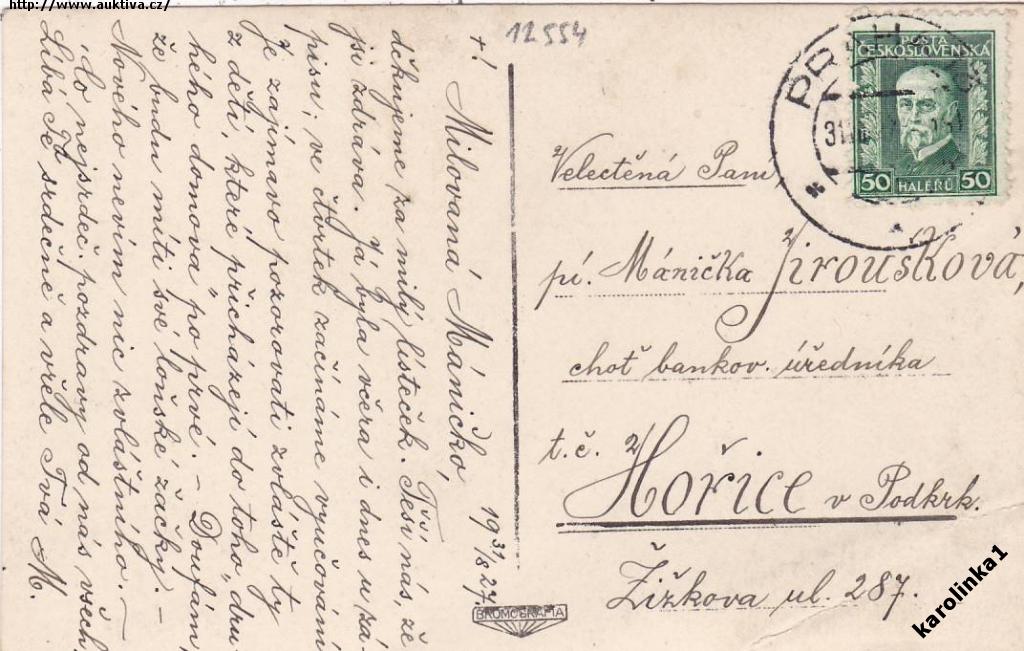 http://www.auktiva.cz/
12554
+! Milovaná Máničko, 19 31/8 27
děkujeme za milý lísteček. Těší nás, že
jsi zdráva. Já byla včera i dnes u zá-
pisu; ve čtvrtek začínáme vyučování
Je zajímavo pozorovati zvláště ty
z dětí, které přicházejí do toho „dru
hého domova" po prvé. – Doufám,
že budu míti své loňské žačky. –
Nového nevím nic zvláštního. –
Co nejsrdeč. pozdravy od nás všech,
Líbá Tě srdečně a vřele Tvá M.
BROMOGRAFIA
POSTA
ČESKOSLOVENSKÁ
50 HALÉŘŮ 50
PRAHA
31
Velectěná Paní
pí. Mánička Jiroušková,
choť bankov. úředníka
t. č. Hořice v Podkrk.
Žižkova ul. 287.
karolinka1